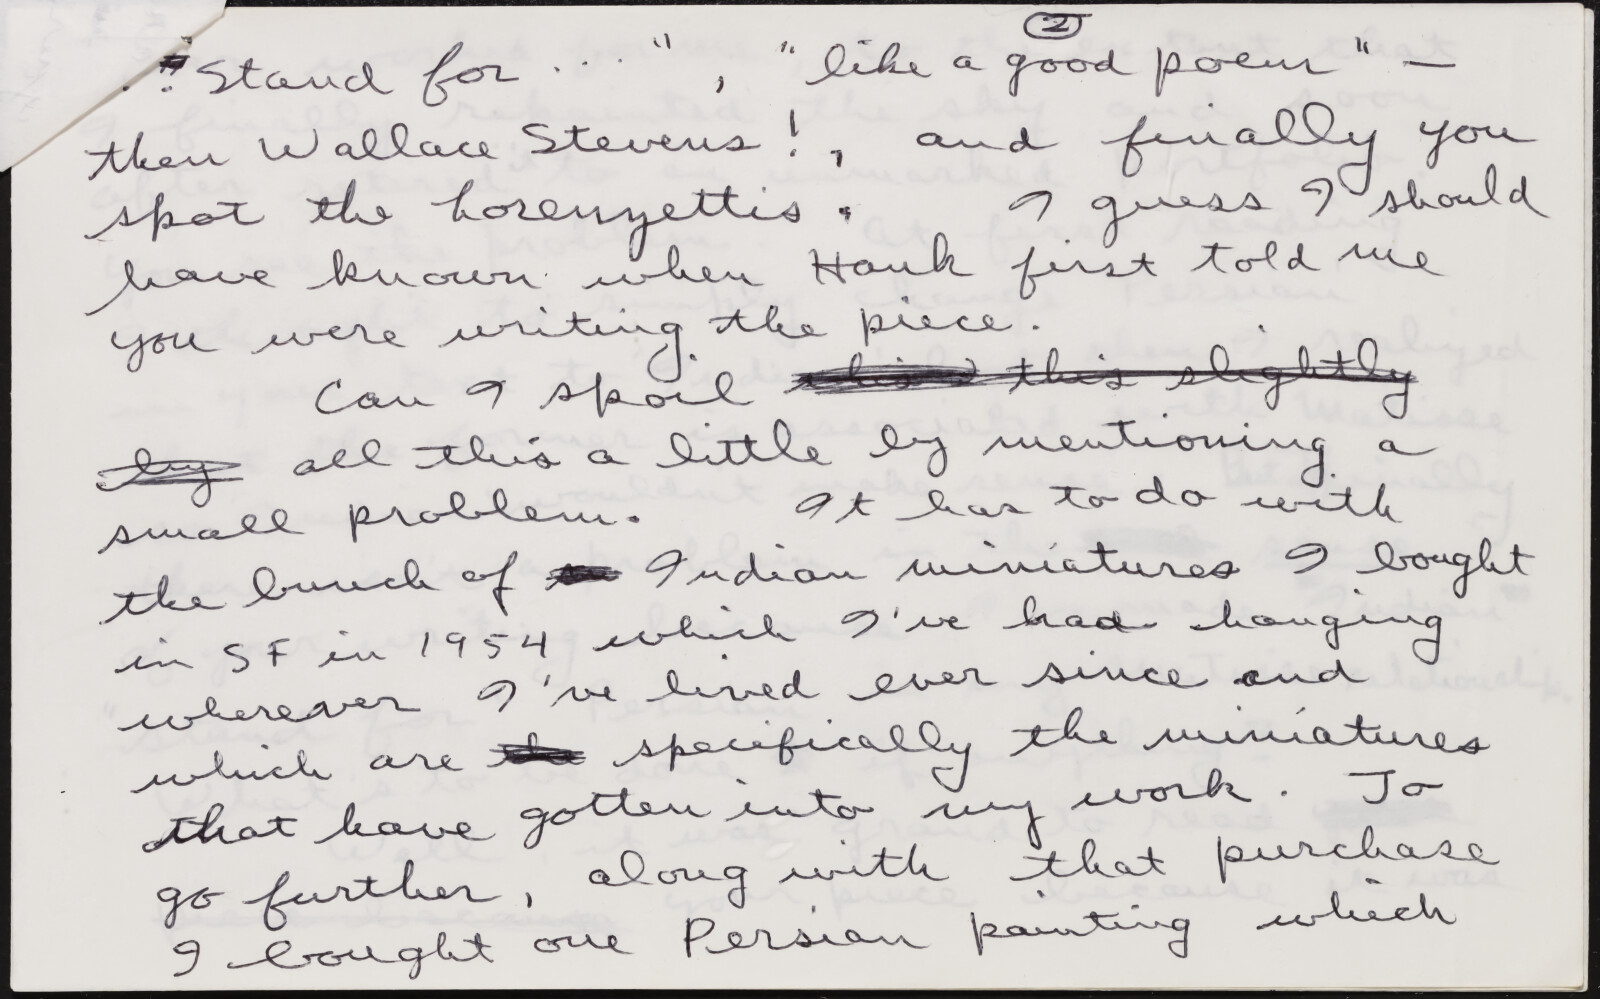 2
"Stand for . . . ", "like a good poem" —
then Wallace Stevens!, and finally you
spot the Lorenzettis. I guess I should
have known when Hank first told me
you were writing the piece.
Can I spoil this slightly
by all this a little by mentioning a
small problem. It has to do with
the bunch of Indian miniatures I bought
in SF in 1954 which I've had hanging
wherever I've lived ever since and
which are specifically the miniatures
that have gotten into my work. To
go further, along with that purchase
I bought one Persian painting which